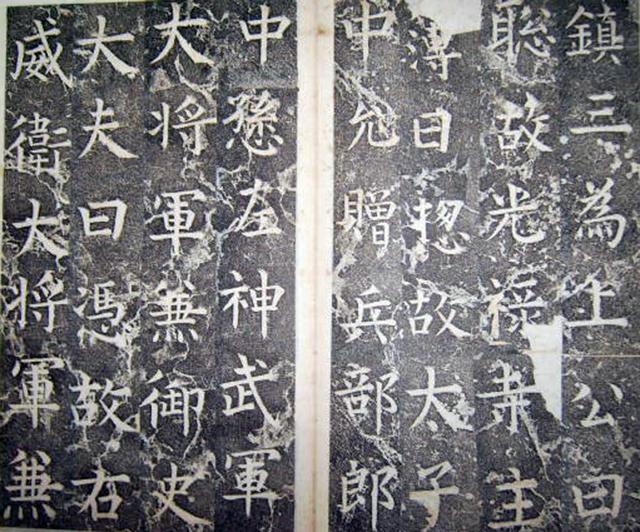 鎮三為上公曰
聡故光禄主
曰揔故太子
中允贈兵部郎
中愻左神武軍
大将軍兼御史
大夫曰憑故右
威衛大将軍兼